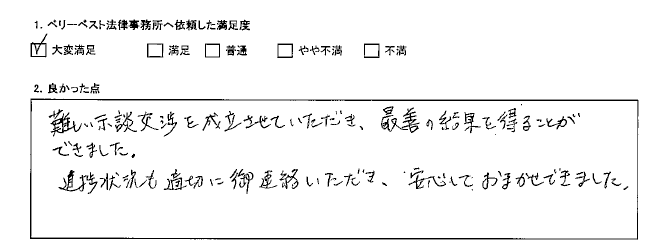 1. ベリーベスト法律事務所へ依頼した満足度
☑ 大変満足 □ 満足 □ 普通 □ やや不満 □ 不満
2. 良かった点
難しい示談交渉を成立させていただき、最善の結果を得ることが
できました。
進捗状況も適切に御連絡いただき、安心しておまかせできました。